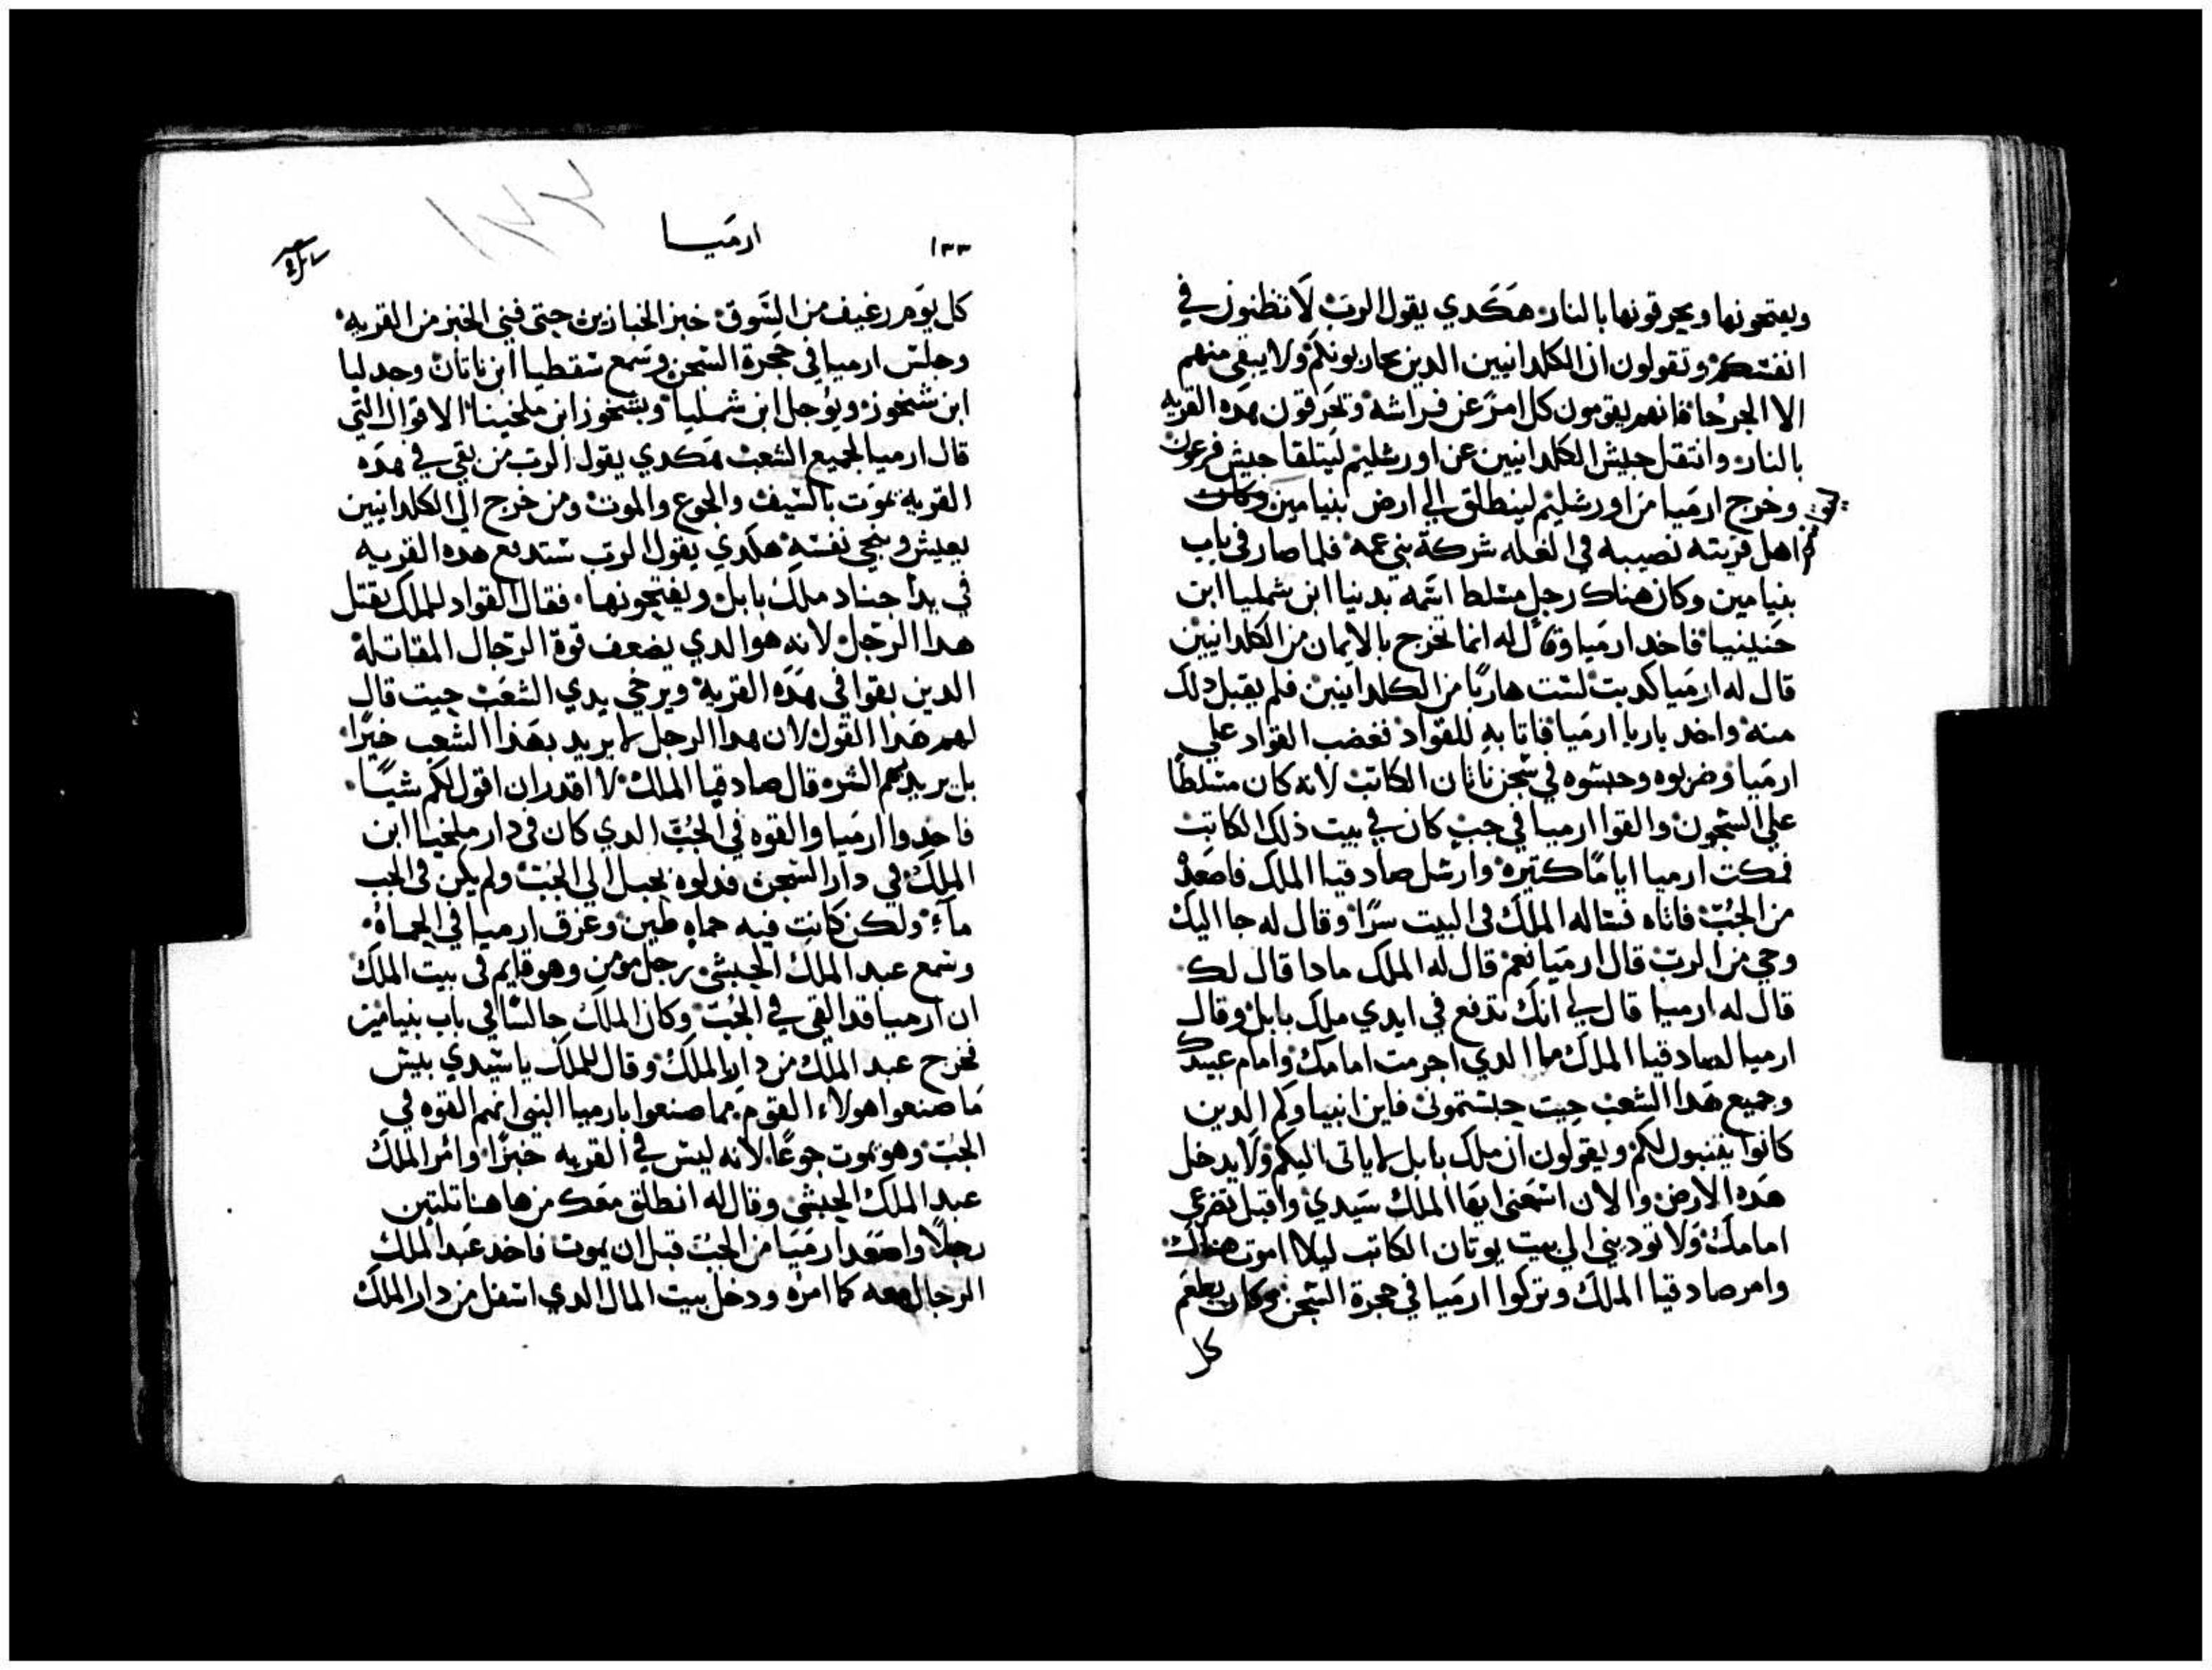 ويفتحونها ويحرقونها بالنار هكدي يقول الرب لا تظنون في
انفسكم وتقولون ان الكلدانيين الدين يحاربونكم ولا يبقي منهم
الا الجرحا فانهم يقومون كل امرء عن فراشه وتحرقون هده القريه
بالنار وانتقل جيش الكلدانيين عن اورشليم ليتلقا جيش فرعون
وخرج ارميا من اورشليم لينطلق الي ارض بنيامين
اهل قريته نصيبه في الغله شركة بني عمه فلما صار في باب
بنيامين وكان هناك رجل مسلط اسمه يدنيا ابن شمليا ابن
حنينيا فاخد ارميا وقال له انما تخرج بالايمان من الكلدانيين
قال له ارميا كدبت لست هاربا من الكلدانيين فلم يقبل دلك
منه واخد ياريا ارميا فاتا به للقواد فغضب القواد علي
ارميا وضربوه وحبسوه في سجن ناثان الكاتب لانه كان مسلطا
علي السجون والقوا ارميا في جب كان في بيت ذلك الكاتب
فمكت ارميا اياما كتيره وارسل صادقيا الملك فاصعد
من الجب فاتاه فساله الملك في البيت سرا وقال له جا اليك
وحي من الرب قال ارميا نعم قال له الملك مادا قال لك
قال له ارميا قال لي انك تدفع في ايدي ملك بابل وقال
ارميا لصادقيا الملك ما الدي اجرمت امامك وامام عبيدك
وجميع هدا الشعب حيت حبستموني فاين انبياوكم الدين
كانوا يتنبون لكم ويقولون ان ملك بابل لا ياتي اليكم ولا يدخل
هده الارض والان اسمعني ايها الملك سيدي واقبل تضرعي
امامك ولا تودني الي بيت يوتان الكاتب ليلا اموت هناك
وامر صادقيا الملك وتركوا ارميا في حجرة السجن وكان يطعم
كل
١٣٣
ارميا
كل يوم رغيف من السوق خبز الخبازين حتي فني الخبز من القريه
وجلس ارميا في حجرة السجن وسمع سفطيا ابن ناتان وجدليا
ابن شنحوز ويوجل ابن شمليا وبشحوز ابن ملخينا الاقوال التي
قال ارميا لجميع الشعب هكدي يقول الرب من بقي في هده
القريه يموت بالسيف والجوع والموت ومن خرج الي الكلدانيين
يعيش وينجي نفسه هكدي يقول الرب ستدفع هده القريه
في يد اجناد ملك بابل ويفتحونها فقال القواد للملك يقتل
هدا الرجل لانه هو الدي يضعف قوة الرجال المقاتلة
الدين بقوا في هده القريه ويرخي يدي الشعب حيت قال
لهم هدا القول لان هدا الرجل لا يريد بهذا الشعب خيرا
بل يريد بهم الشر قال صادقيا الملك لا اقدر ان اقول لكم شيا
فاخدوا ارميا والقوه في الجب الدي كان في دار ملخيا ابن
الملك في دار السجن فدلوه بحبل الي الجب ولم يكن في الجب
ماء ولكن كانت فيه حماه طين وغرق ارميا في الحماة
وسمع عبد الملك الحبشي رجل مومن وهو قايم في بيت الملك
ان ارميا قد القي في الجب وكان الملك جالسا في باب بنيامين
فخرج عبد الملك من دار الملك وقال للملك يا سيدي بيس
ما صنعوا هولاء القوم مما صنعوا بارميا النبي انهم القوه في
الجب وهو يموت جوعا لانه ليس في القريه خبزا وامر الملك
عبد الملك الحبشي وقال له انطلق معك من هاهنا تلتين
رجلا واصعد ارميا من الجب قبل ان يموت فاخد عبد الملك
الرجال معه كما امره ودخل بيت المال الدي اسفل من دار الملك